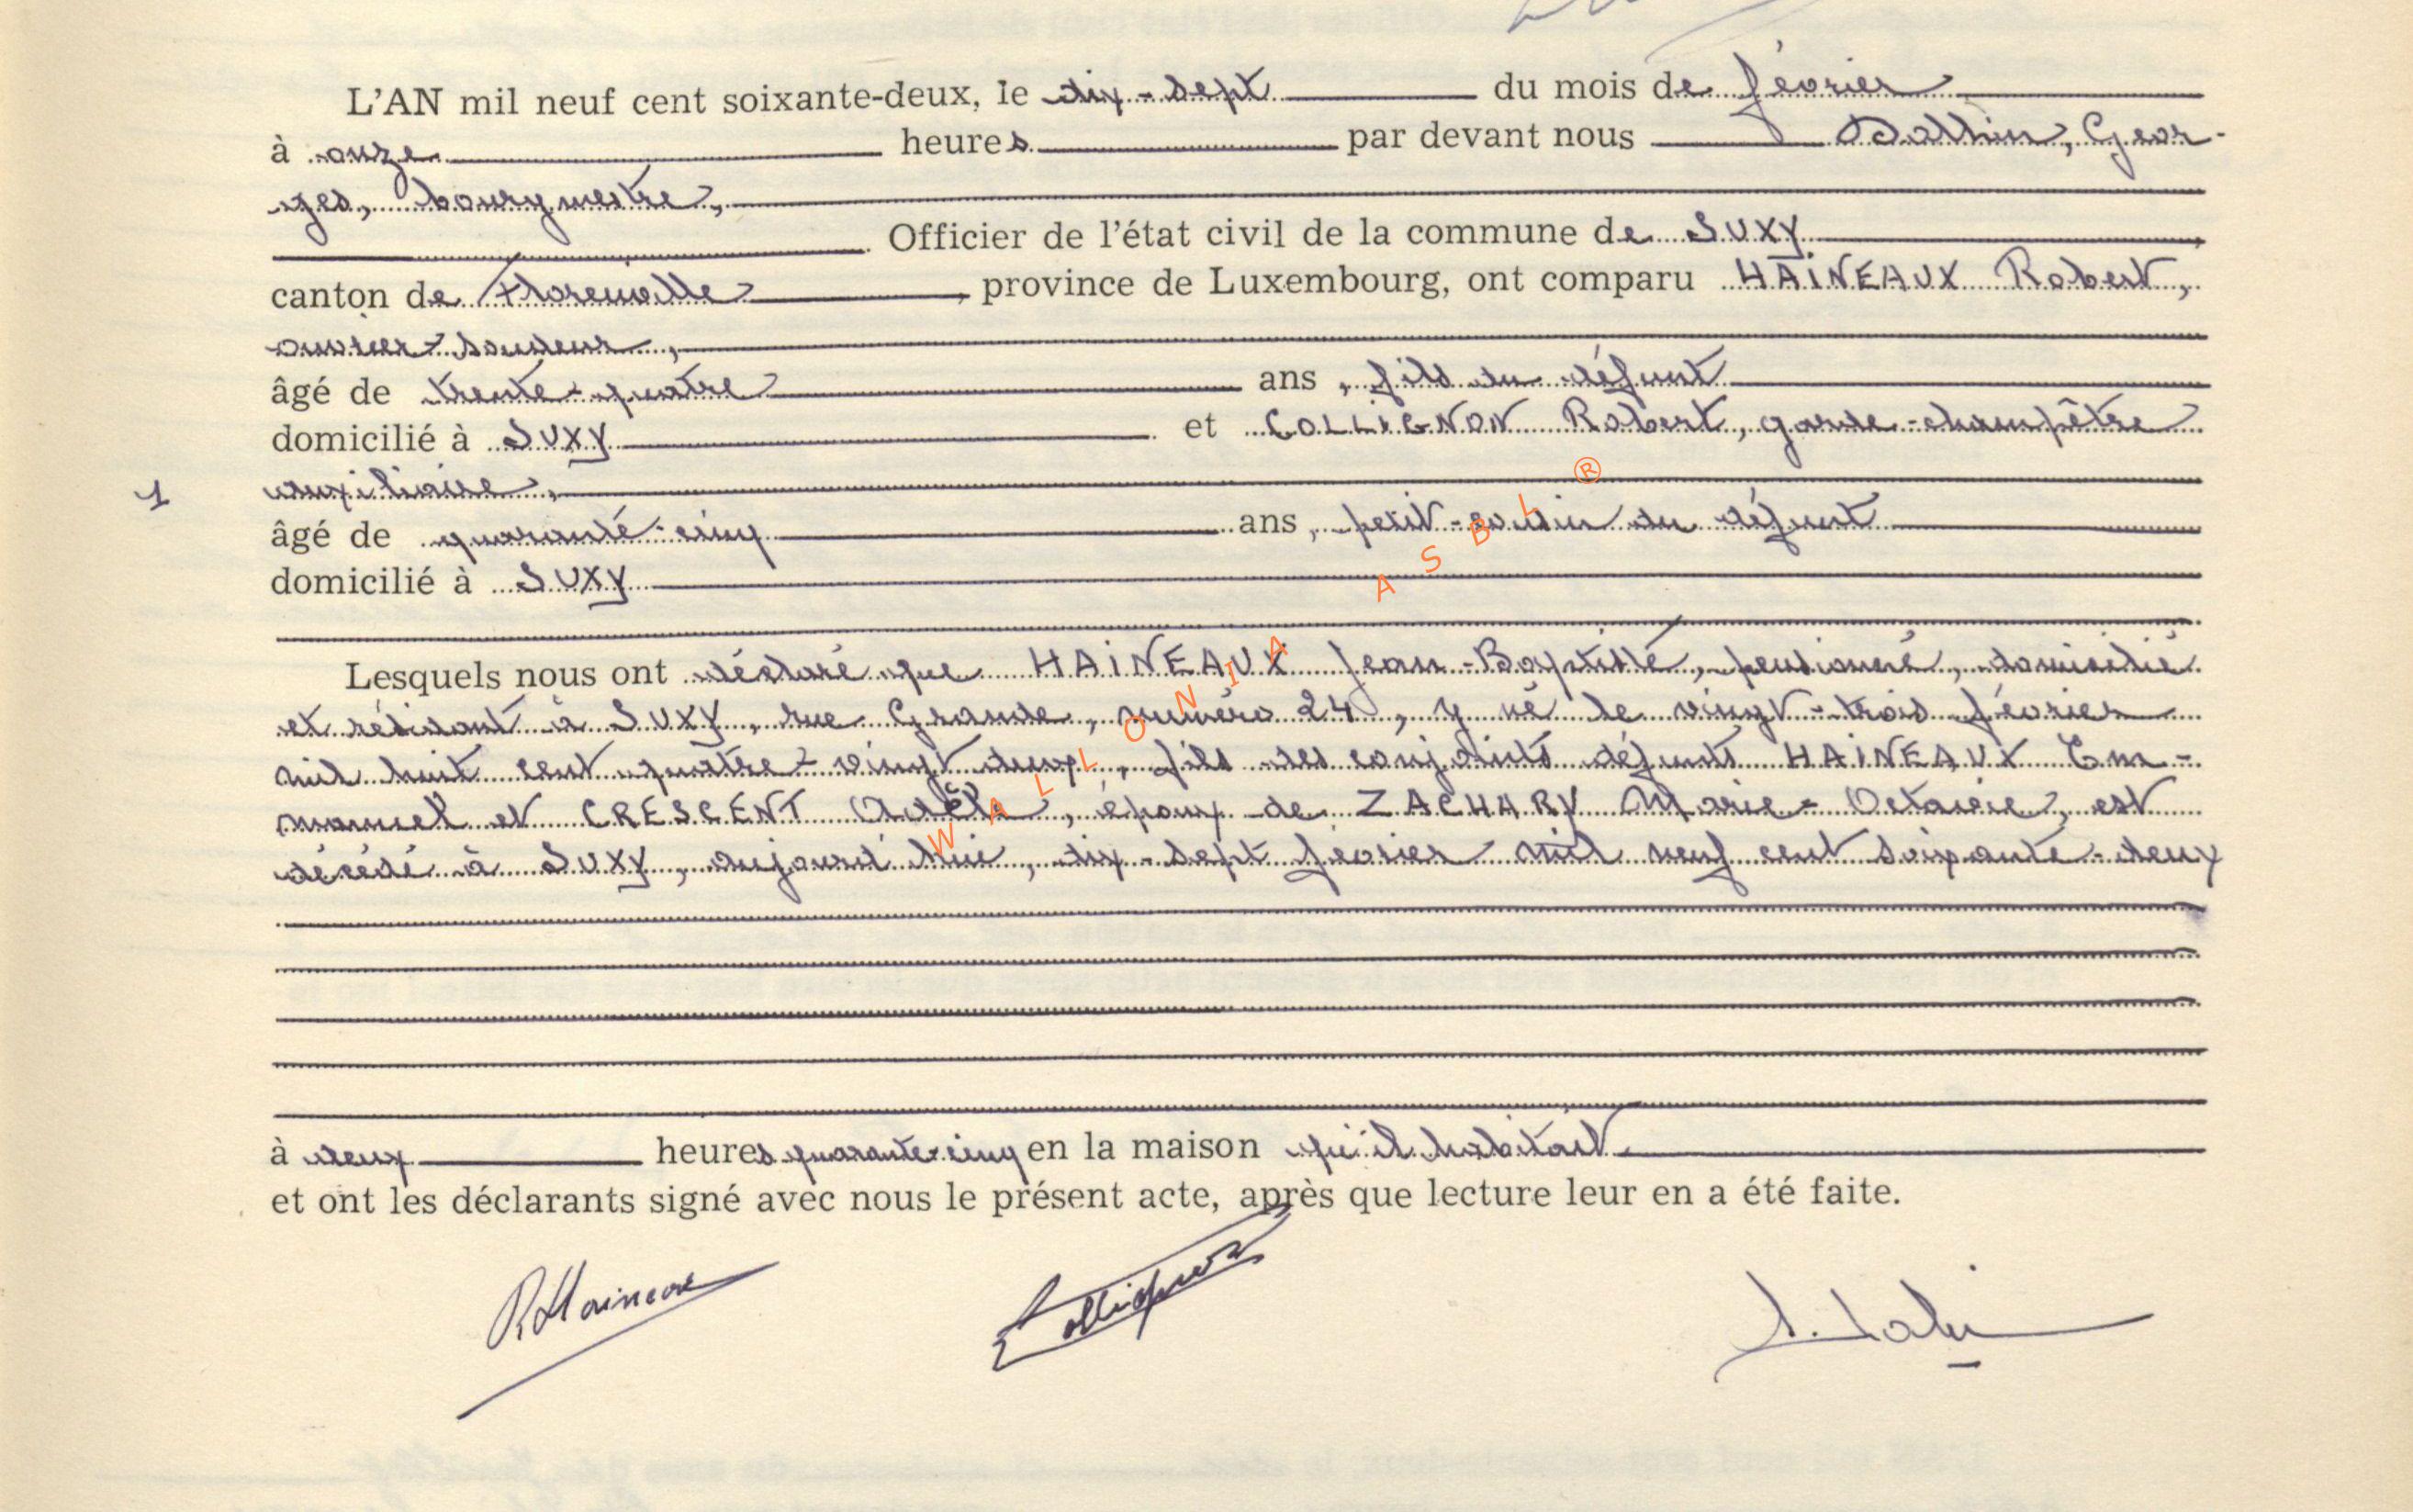 L'AN mil neuf cent soixante-deux, le dix-sept du mois de février
à onze heures par devant nous Geor-
ges, bourgmestre,
Officier de l'état civil de la commune de SUXY
canton de Florenville, province de Luxembourg, ont comparu HAINEAUX Robert,
ouvrier-soudeur,
âgé de trente-quatre ans, fils du défunt
domicilié à SUXY et COLLIGNON Robert, garde-champêtre
1 auxiliaire,
âgé de quarante-cinq ans, petit-cousin du défunt
domicilié à SUXY
Lesquels nous ont déclaré que HAINEAUX Jean-Baptiste, pensionné, domicilié
et résidant à SUXY, rue Grande, numéro 24, y né le vingt-trois février
mil huit cent quatre-vingt deux, fils des conjoints défunts HAINEAUX Em-
manuel et CRESCENT Adèle, époux de ZACHARY Marie-Octavie, est
décédé à SUXY, aujourd'hui, dix-sept février mil neuf cent soixante-deux
à deux heures quarante-cinq en la maison qu'il habitait
et ont les déclarants signé avec nous le présent acte, après que lecture leur en a été faite.
RHaineaux Collignon
WALLONIA ASBL ®